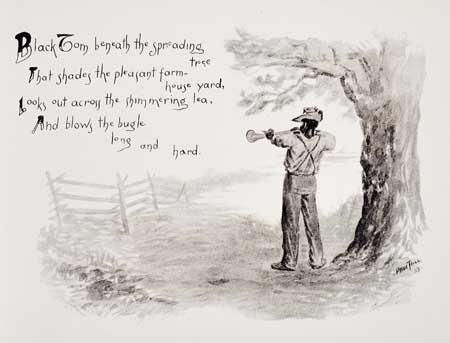 Black Tom beneath the spreading
tree
That shades the pleasant farm-
house yard,
Looks out across the shimmering lea,
And blows the bugle
long and hard.